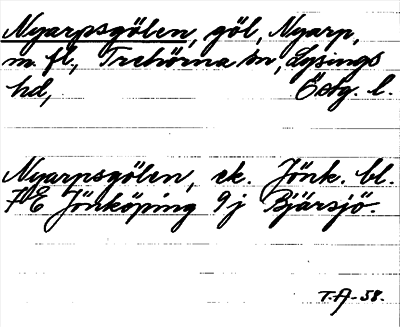 Nyarpsgölen, göl, Nyarp,
m. fl., Trehörna sn, Lysings
hd, Östg. l.
Nyarpsgölen, ek. Jönk. bl.
7E Jönköping 9j Bjärsjö.
T.A-58.